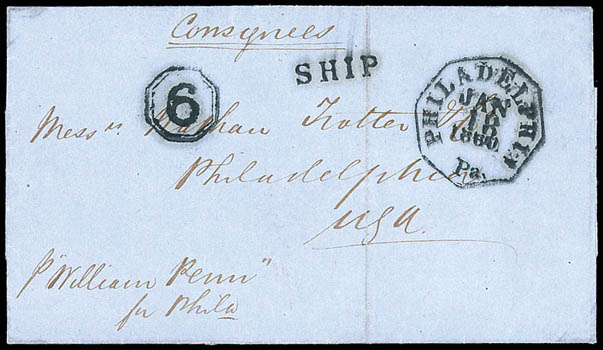 Consignees
SHIP
6
PHILADELPHIA
JAN
18
1860
Pa.
Messrs Nathan Trotter & Co
Philadelphia
USA
p "William Penn"
for Phila